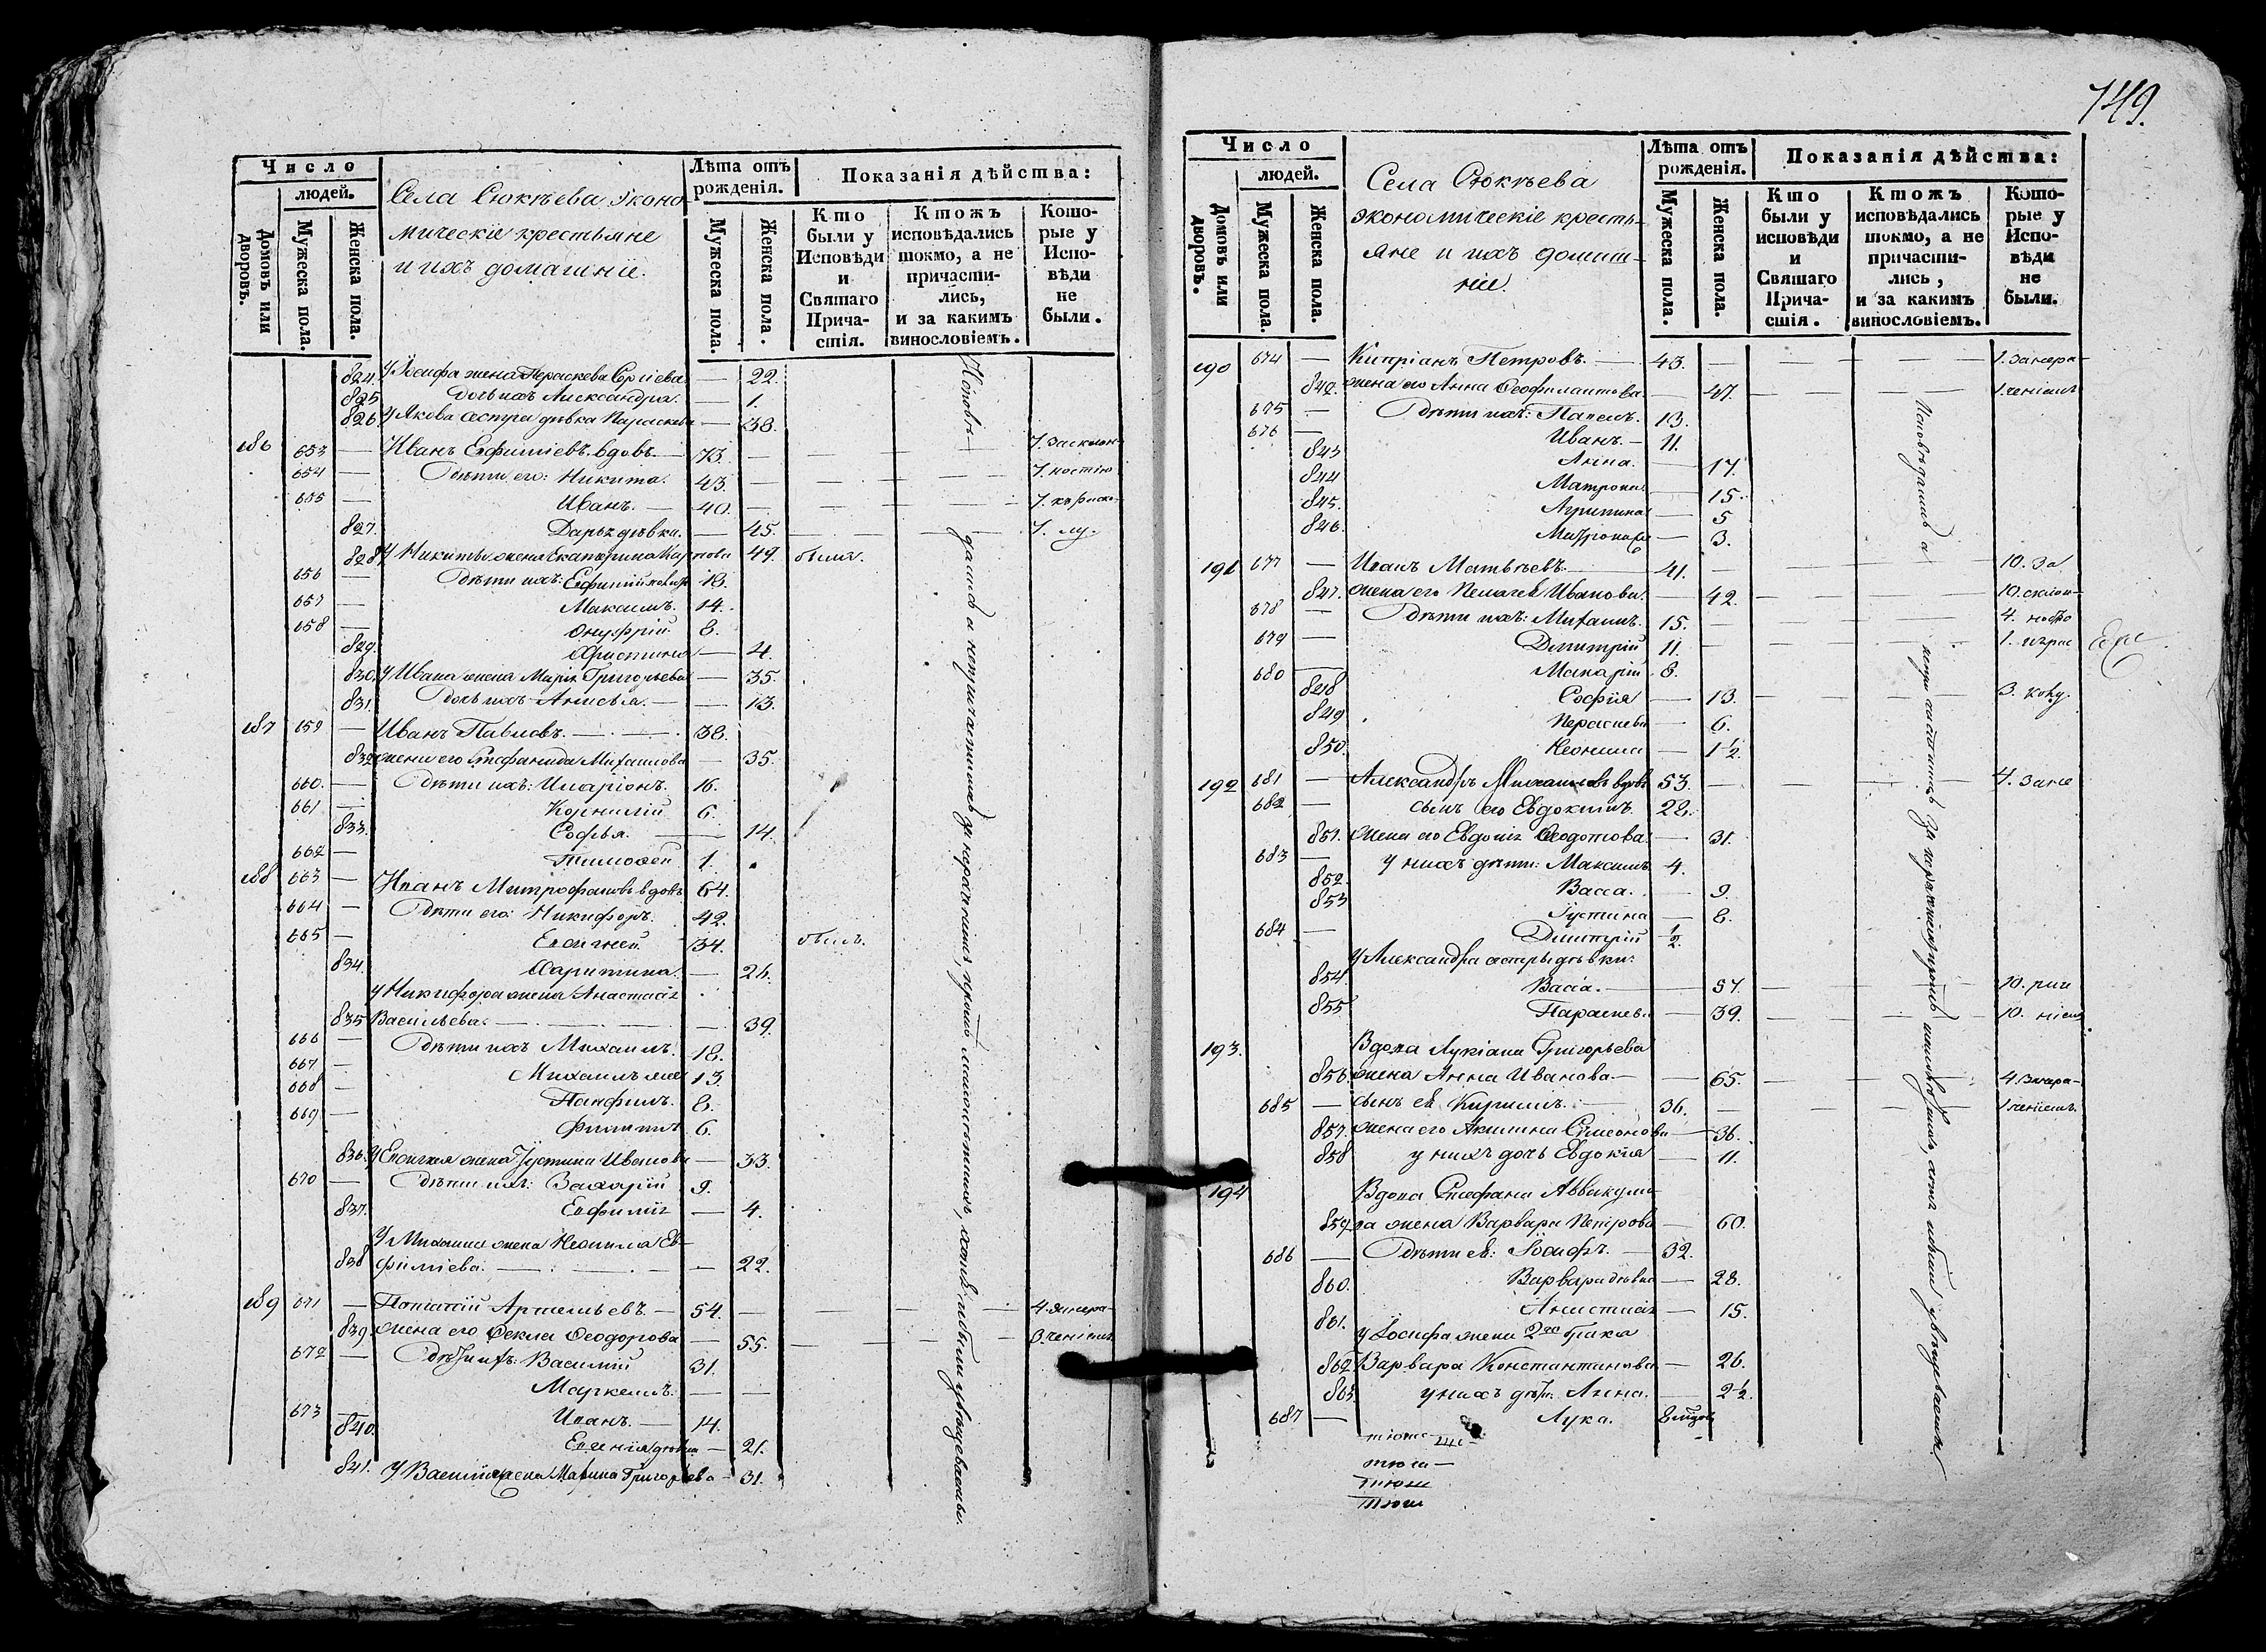 749.
Число
людей.
Домовъ или дворовъ.
Мужеска пола.
Женска пола.
Села Сюкѣева эконо-
мическіе крестьяне
и ихъ домашніе.
Лѣта отъ
рожденія.
Мужеска пола.
Женска пола.
Показанія дѣйства:
Кто были у Исповѣди и Святаго Прича-стія.
Ктожъ исповѣдались токмо, а не причасти-лись, и за какимъ винословіемъ.
Кото-рые у Испо-вѣди не были.
824. У Іосифа жена Параскева 22.
825 дочь ихъ Александра. — 1.
826 У Якова сестра дѣвка Параскева — 38.
186 653 — Иванъ Евфиміевъ вдовъ 73. — — — 7.
654 — Дѣти его: Никита. 43. — — — 7.
655 — Иванъ. — 40. — — — 7.
827. Дарья дѣвка. — 45. — — — 7.
828 У Никиты жена Екатерина Карпова 49. была.
656 — Дѣти ихъ: Евфимій 18.
657 — Максимъ. 14.
658 — Онуфрій 8.
829. Христина — 4.
830. У Ивана жена Марія Григорьева — 35.
831. дочь ихъ Анисья. — — 13.
187 659 — Иванъ Павловъ. — 38.
832 жена его Стефанида Михаилова — 35.
660. — Дѣти ихъ: Иларіонъ. 16.
661 — Корнилій 6.
833. Софья. — 14.
662 — Тимофей 1.
188 663 — Иванъ Митрофановъ вдовъ 64.
664 — Дѣти его: Никифоръ. 42.
665 — 34. былъ.
834. Харитина. — 26.
У Никифора жена Анастасія
835 Васильева. — — 39.
666 — Дѣти ихъ Михаилъ. 18.
667 — Михаилъ 13.
668 — Панфилъ. 8.
669 — Филиппъ 6.
836. жена Іустина Иванова — 33.
670 — Дѣти ихъ: Захарій 9.
837. Евфимія — 4.
У Михаила жена Неонила Ев-
838 фиміева. — — 22.
189 671 — Потапій Артемьевъ — 54. — — — 4. занера-
839. жена его Ѳекла Ѳеодорова — 55. — — — 3. ченіемъ
672 — Дѣти ихъ: Василій 31.
Маркелъ. — —
673 — Иванъ. — 14.
840. Евгенія дѣвка — 21.
841. У Василія жена Марина Григорьева — 31.
Исповѣдались а непричастились
Число
людей.
Домовъ или дворовъ.
Мужеска пола.
Женска пола.
Села Сюкѣева
экономическіе кресть-
яне и ихъ домаш-
ніе.
Лѣта отъ
рожденія.
Мужеска пола.
Женска пола.
Показанія дѣйства:
Кто были у исповѣди и Святаго Прича-стія.
Ктожъ исповѣдались токмо, а не причасти-лись, и за какимъ винословіемъ.
Кото-рые у Испо-вѣди не были.
190 674 — Кипріанъ Петровъ. — 43. — — — 1. занера-
842. жена его Анна Ѳеофилактова — 47. — — — 1. ченіемъ
675 — Дѣти ихъ: Павелъ. 13.
676 — Иванъ. — 11.
843 Анна. — 17.
844 Матрона — 15.
845. Агрипина — 5
846. Митродора — 3.
191 677 — Иванъ Матвѣевъ. — 41. — — — 10. За
847. жена его Пелагея Иванова. — 42. — — — 10. склон-
678 — Дѣти ихъ: Михаилъ. 15. — — — 4.
679 — Димитрій 11. — — — 1.
680 — Макарій 8.
848 Софія — 13. — — — 3.
849 Параскева — 6.
850. Неонила — 1½
192 681 — Александръ Михаиловъ вдовъ 53. — — — 4. Зане
682 — сынъ его Евдокимъ. 22.
851. жена его Евдокія Ѳеодотова — 31.
683 — у нихъ дѣти: Максимъ 4.
852. Васса. — 9.
853 Іустина — 8.
684 — Димитрій ½.
У Александра сестры дѣвки:
854. Васса. — 57. — — — 10.
855 Параскева — 39. — — — 10. ніемъ
193. Вдова Лукіана Григорьева
856. жена Анна Иванова — — 65. — — — 4. Занера-
685 — сынъ ея Кирилъ. — 36. — — — 1 ченіемъ.
857. жена его Акилина Симеонова — 36.
858 у нихъ дочь Евдокія — 11.
194 Вдова Стефана Аввакумо-
859. ва жена Варвара Петрова — 60.
686 — Дѣти ея: Іосифъ. — 32.
860. Варвара дѣвка — 28.
861. Анастасія — 15.
У Іосифа жена 2го брака
862. Варвара Константинова — 26.
863. у нихъ дѣти: Анна. — 2½.
687 — Лука.
Исповѣдались а непричастились